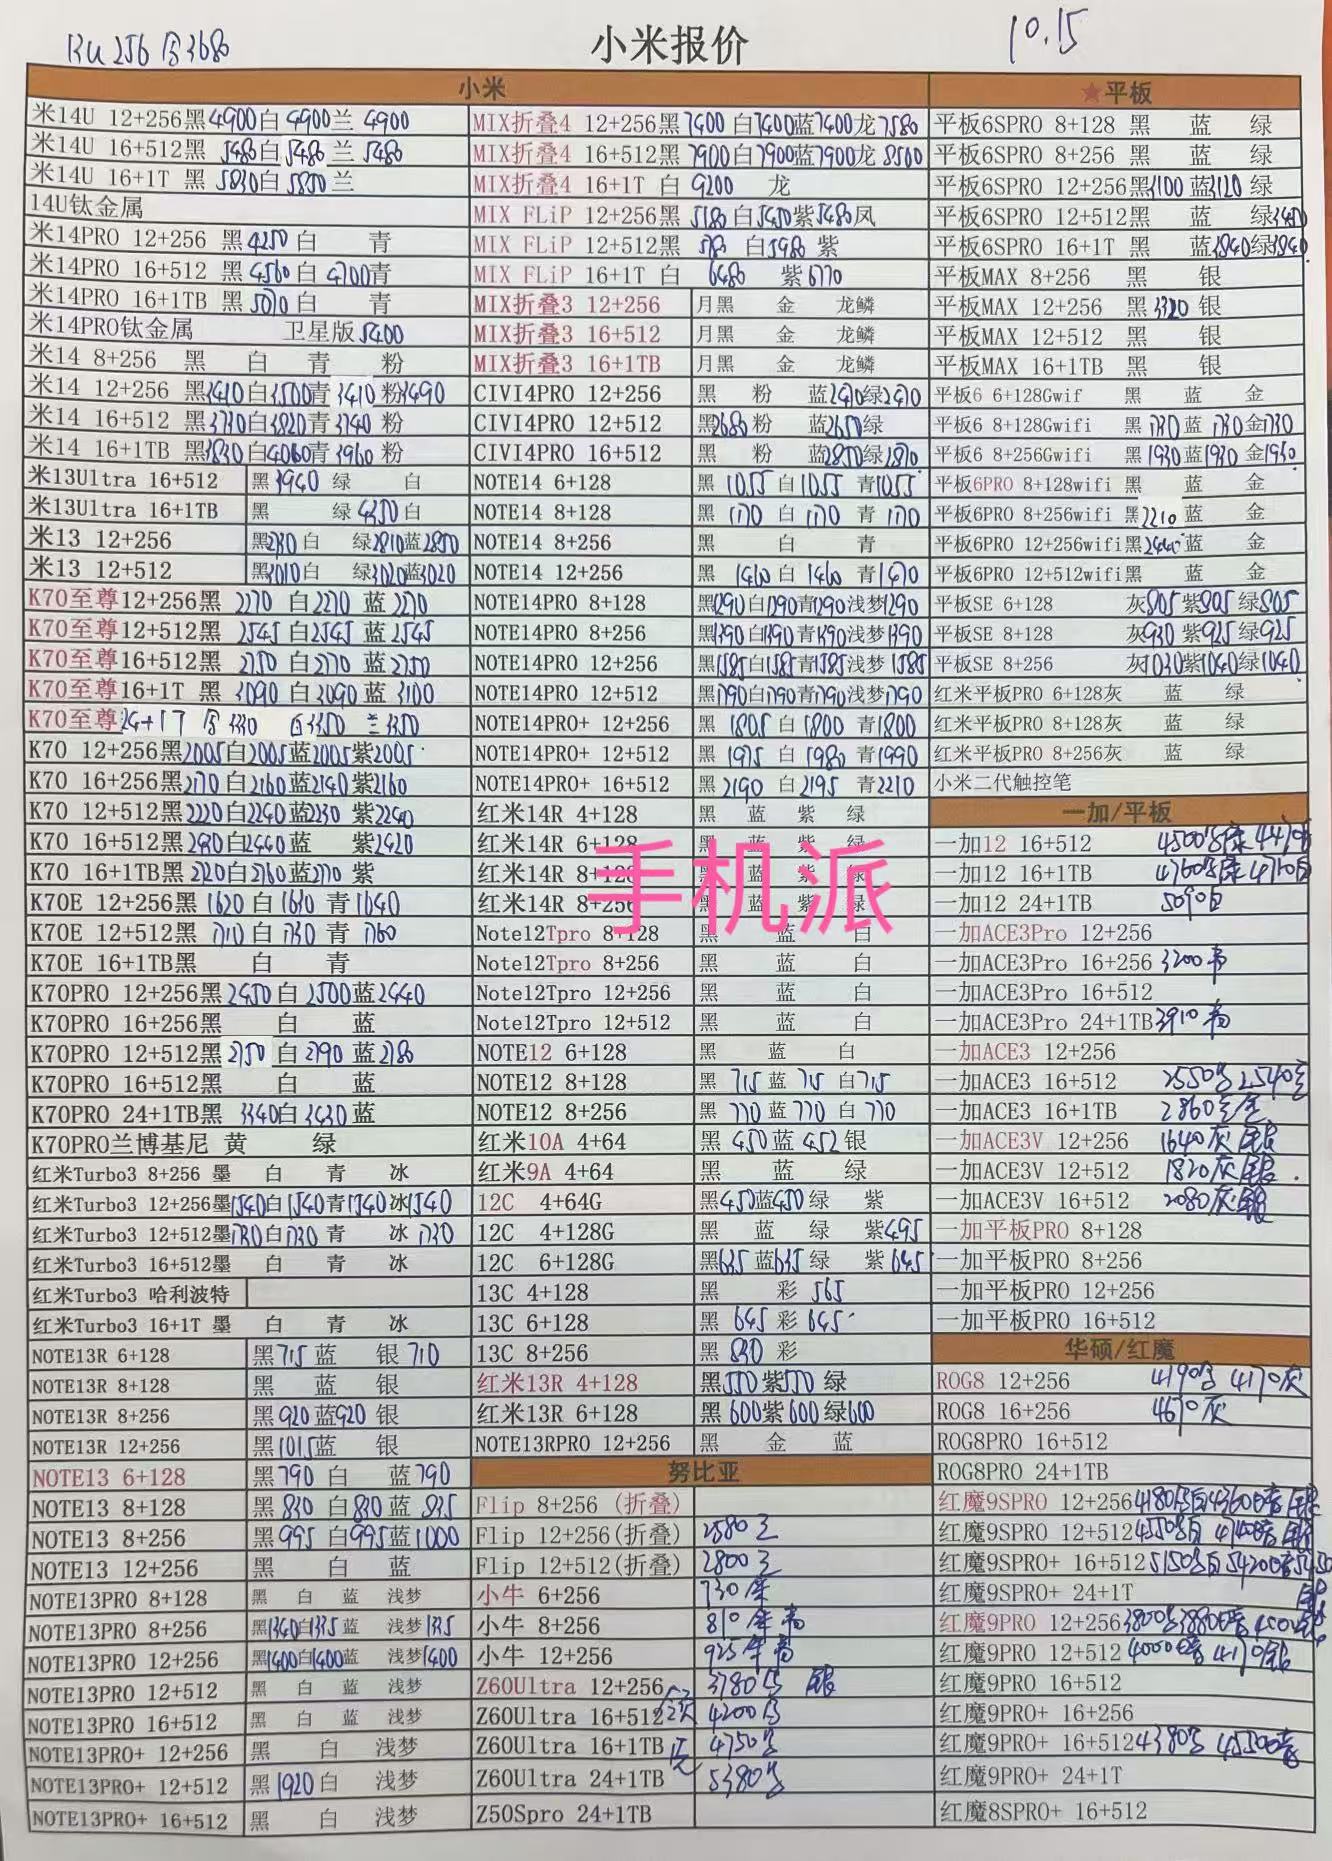 13U 256 白3680
小米报价
10.15
小米
米14U 12+256黑4900白4900兰 4900
米14U 16+512黑 5480白5480兰 5480
米14U 16+1T 黑 5830白5850兰
14U钛金属
米14PRO 12+256 黑4250白 青
米14PRO 16+512 黑4560白4700青
米14PRO 16+1TB 黑5070白 青
米14PRO钛金属 卫星版5400
米14 8+256 黑 白 青 粉
米14 12+256 黑3410白3500青3410粉3490
米14 16+512 黑3730白3820青3740粉
米14 16+1TB 黑3830白4060青3960粉
米13Ultra 16+512 黑3940 绿 白
米13Ultra 16+1TB 黑 绿4350白
米13 12+256 黑 白 绿2810蓝2850
米13 12+512 黑3010白 绿3020蓝3020
K70至尊12+256黑 2270 白2270 蓝 2270
K70至尊12+512黑 2545 白2545 蓝 2545
K70至尊16+512黑 2750 白2770 蓝 2750
K70至尊16+1T 黑 3090 白3090 蓝 3100
K70至尊24+1T 白3350 兰3350
K70 12+256黑2005白2005蓝2005紫2005
K70 16+256黑2170白2160蓝2140紫2160
K70 12+512黑2220白2240蓝2230 紫2240
K70 16+512黑 白2440蓝 紫2420
K70 16+1TB黑 白2760蓝2770 紫
K70E 12+256黑 1620 白1630 青1640
K70E 12+512黑 1710 白1730 青 1760
K70E 16+1TB黑 白 青
K70PRO 12+256黑2450白2500蓝2440
K70PRO 16+256黑 白 蓝
K70PRO 12+512黑2750 白2790 蓝2780
K70PRO 16+512黑 白 蓝
K70PRO 24+1TB黑 3340白3430蓝
K70PRO兰博基尼 黄 绿
红米Turbo3 8+256 墨 白 青 冰
红米Turbo3 12+256墨1540白1540青1540冰1540
红米Turbo3 12+512墨1730白1730 青 冰1730
红米Turbo3 16+512墨 白 青 冰
红米Turbo3 哈利波特
红米Turbo3 16+1T 墨 白 青 冰
NOTE13R 6+128 黑715蓝 银710
NOTE13R 8+128 黑 蓝 银
NOTE13R 8+256 黑920蓝920 银
NOTE13R 12+256 黑1015蓝 银
NOTE13 6+128 黑790 白 蓝790
NOTE13 8+128 黑830 白830 蓝835
NOTE13 8+256 黑995 白995蓝1000
NOTE13 12+256 黑 白 蓝
NOTE13PRO 8+128 黑 白 蓝 浅梦
NOTE13PRO 8+256 黑1340白1335蓝 浅梦1335
NOTE13PRO 12+256 黑1400白1400蓝 浅梦1400
NOTE13PRO 12+512 黑 白 蓝 浅梦
NOTE13PRO 16+512 黑 白 蓝 浅梦
NOTE13PRO+ 12+256 黑 白 浅梦
NOTE13PRO+ 12+512 黑1920白 浅梦
NOTE13PRO+ 16+512 黑 白 浅梦
MIX折叠4 12+256黑7400 白7400蓝7400龙7580
MIX折叠4 16+512黑7900白7900蓝7900龙8500
MIX折叠4 16+1T 白 9200 龙
MIX FLiP 12+256黑 5180 白5450紫5480凤
MIX FLiP 12+512黑 白5980 紫
MIX FLiP 16+1T 白 6480 紫6770
MIX折叠3 12+256 月黑 金 龙鳞
MIX折叠3 16+512 月黑 金 龙鳞
MIX折叠3 16+1TB 月黑 金 龙鳞
CIVI4PRO 12+256 黑 粉 蓝2470绿2470
CIVI4PRO 12+512 黑2680粉 蓝2650绿
CIVI4PRO 16+512 黑 粉 蓝2850绿2870
NOTE14 6+128 黑 1055 白1055 青1055
NOTE14 8+128 黑 1170 白 1170 青 1170
NOTE14 8+256 黑 白 青
NOTE14 12+256 黑 1460白 1460 青1470
NOTE14PRO 8+128 黑1290白1290青1290浅梦1290
NOTE14PRO 8+256 黑1390白1390青1390浅梦1390
NOTE14PRO 12+256 黑1585白1585青1585浅梦 1585
NOTE14PRO 12+512 黑1790白1790青1790浅梦1790
NOTE14PRO+ 12+256 黑 1805 白 1800 青1800
NOTE14PRO+ 12+512 黑 1975 白 1980 青1990
NOTE14PRO+ 16+512 黑2190 白2195 青2210
红米14R 4+128 黑 蓝 紫 绿
红米14R 6+128 黑 蓝 紫 绿
红米14R 8+128 黑 蓝 紫 绿
红米14R 8+256 黑 蓝 紫 绿
手机派
Note12Tpro 8+128 黑 蓝 白
Note12Tpro 8+256 黑 蓝 白
Note12Tpro 12+256 黑 蓝 白
Note12Tpro 12+512 黑 蓝 白
NOTE12 6+128 黑 蓝 白
NOTE12 8+128 黑 715 蓝 715 白715
NOTE12 8+256 黑 770 蓝770 白 770
红米10A 4+64 黑 450蓝 452银
红米9A 4+64 黑 蓝 绿
12C 4+64G 黑450蓝450绿 紫
12C 4+128G 黑 蓝 绿 紫495
12C 6+128G 黑635蓝635绿 紫645
13C 4+128 黑 彩 565
13C 6+128 黑 645彩 645
13C 8+256 黑 830 彩
红米13R 4+128 黑550紫550 绿
红米13R 6+128 黑600紫600绿600
NOTE13RPRO 12+256 黑 金 蓝
努比亚
Flip 8+256 (折叠)
Flip 12+256(折叠) 2580
Flip 12+512(折叠) 2800
小牛 6+256 730
小牛 8+256 810
小牛 12+256 925
Z60Ultra 12+256 3780 银
Z60Ultra 16+512 4200
Z60Ultra 16+1TB 4750
Z60Ultra 24+1TB 5380
Z50Spro 24+1TB
★平板
平板6SPRO 8+128 黑 蓝 绿
平板6SPRO 8+256 黑 蓝 绿
平板6SPRO 12+256黑3100 蓝3120 绿
平板6SPRO 12+512黑 蓝 绿3450
平板6SPRO 16+1T 黑 蓝3840绿3840
平板MAX 8+256 黑 银
平板MAX 12+256 黑3320 银
平板MAX 12+512 黑 银
平板MAX 16+1TB 黑 银
平板6 6+128Gwif 黑 蓝 金
平板6 8+128Gwifi 黑1730蓝1730金1730
平板6 8+256Gwifi 黑1930蓝1930 金1950
平板6PRO 8+128wifi 黑 蓝 金
平板6PRO 8+256wifi 黑2210 蓝 金
平板6PRO 12+256wifi黑2440蓝 金
平板6PRO 12+512wifi黑 蓝 金
平板SE 6+128 灰805紫805 绿805
平板SE 8+128 灰930 紫925 绿925
平板SE 8+256 灰1030紫1040绿1040
红米平板PRO 6+128灰 蓝 绿
红米平板PRO 8+128灰 蓝 绿
红米平板PRO 8+256灰 蓝 绿
小米二代触控笔
一加/平板
一加12 16+512 4500
一加12 16+1TB 4760
一加12 24+1TB 5090白
一加ACE3Pro 12+256
一加ACE3Pro 16+256 3200
一加ACE3Pro 16+512
一加ACE3Pro 24+1TB3910
一加ACE3 12+256
一加ACE3 16+512 2550 2540
一加ACE3 16+1TB 2860
一加ACE3V 12+256 1640灰 银
一加ACE3V 12+512 1820灰 银
一加ACE3V 16+512 2080灰 银
一加平板PRO 8+128
一加平板PRO 8+256
一加平板PRO 12+256
一加平板PRO 16+512
华硕/红魔
ROG8 12+256 4190 4170灰
ROG8 16+256 4670灰
ROG8PRO 16+512
ROG8PRO 24+1TB
红魔9SPRO 12+256 4180
红魔9SPRO 12+512 4550
红魔9SPRO+ 16+512 5150
红魔9SPRO+ 24+1T
红魔9PRO 12+256 3800
红魔9PRO 12+512 4000 4170银
红魔9PRO 16+512
红魔9PRO+ 16+256
红魔9PRO+ 16+512 4380
红魔9PRO+ 24+1T
红魔8SPRO+ 16+512